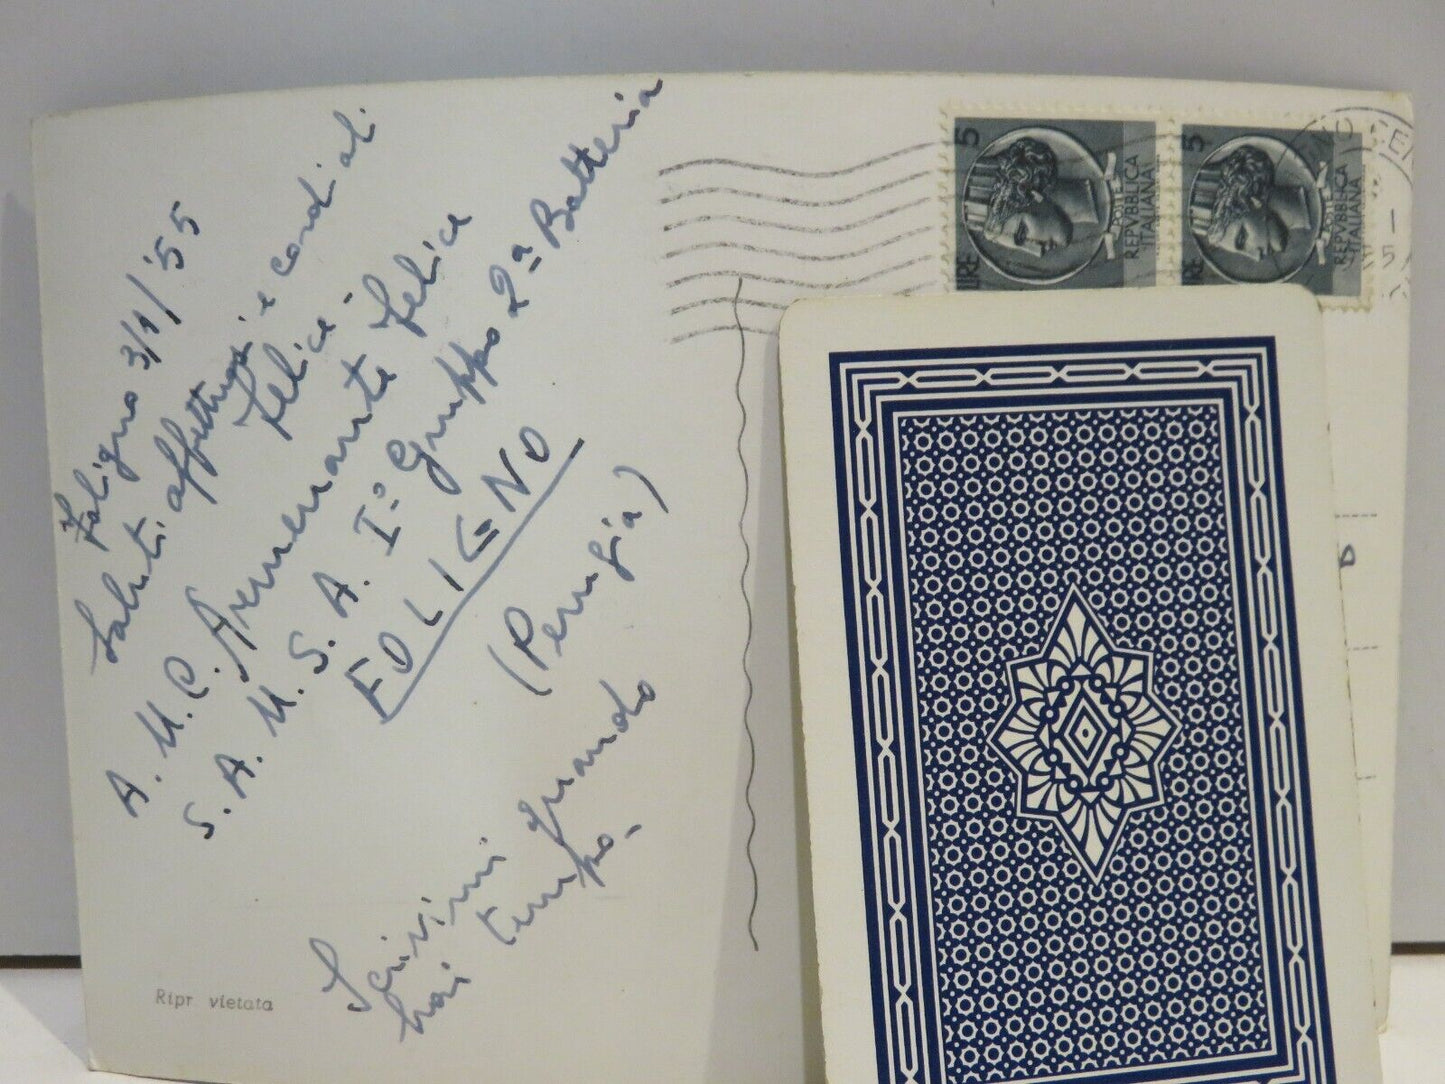 Foligno 3/1/'55
Saluti affettuosi e cordiali
Felice -
A. U. C. Armenante Felice
S. A. U. S. A. I° Gruppo 2ª Batteria
FOLIGNO
(Perugia)
Scrivimi quando
hai tempo.
Ripr vietata
5
LIRE
POSTE
REPVBBLICA
ITALIANA
5
LIRE
POSTE
REPVBBLICA
ITALIANA